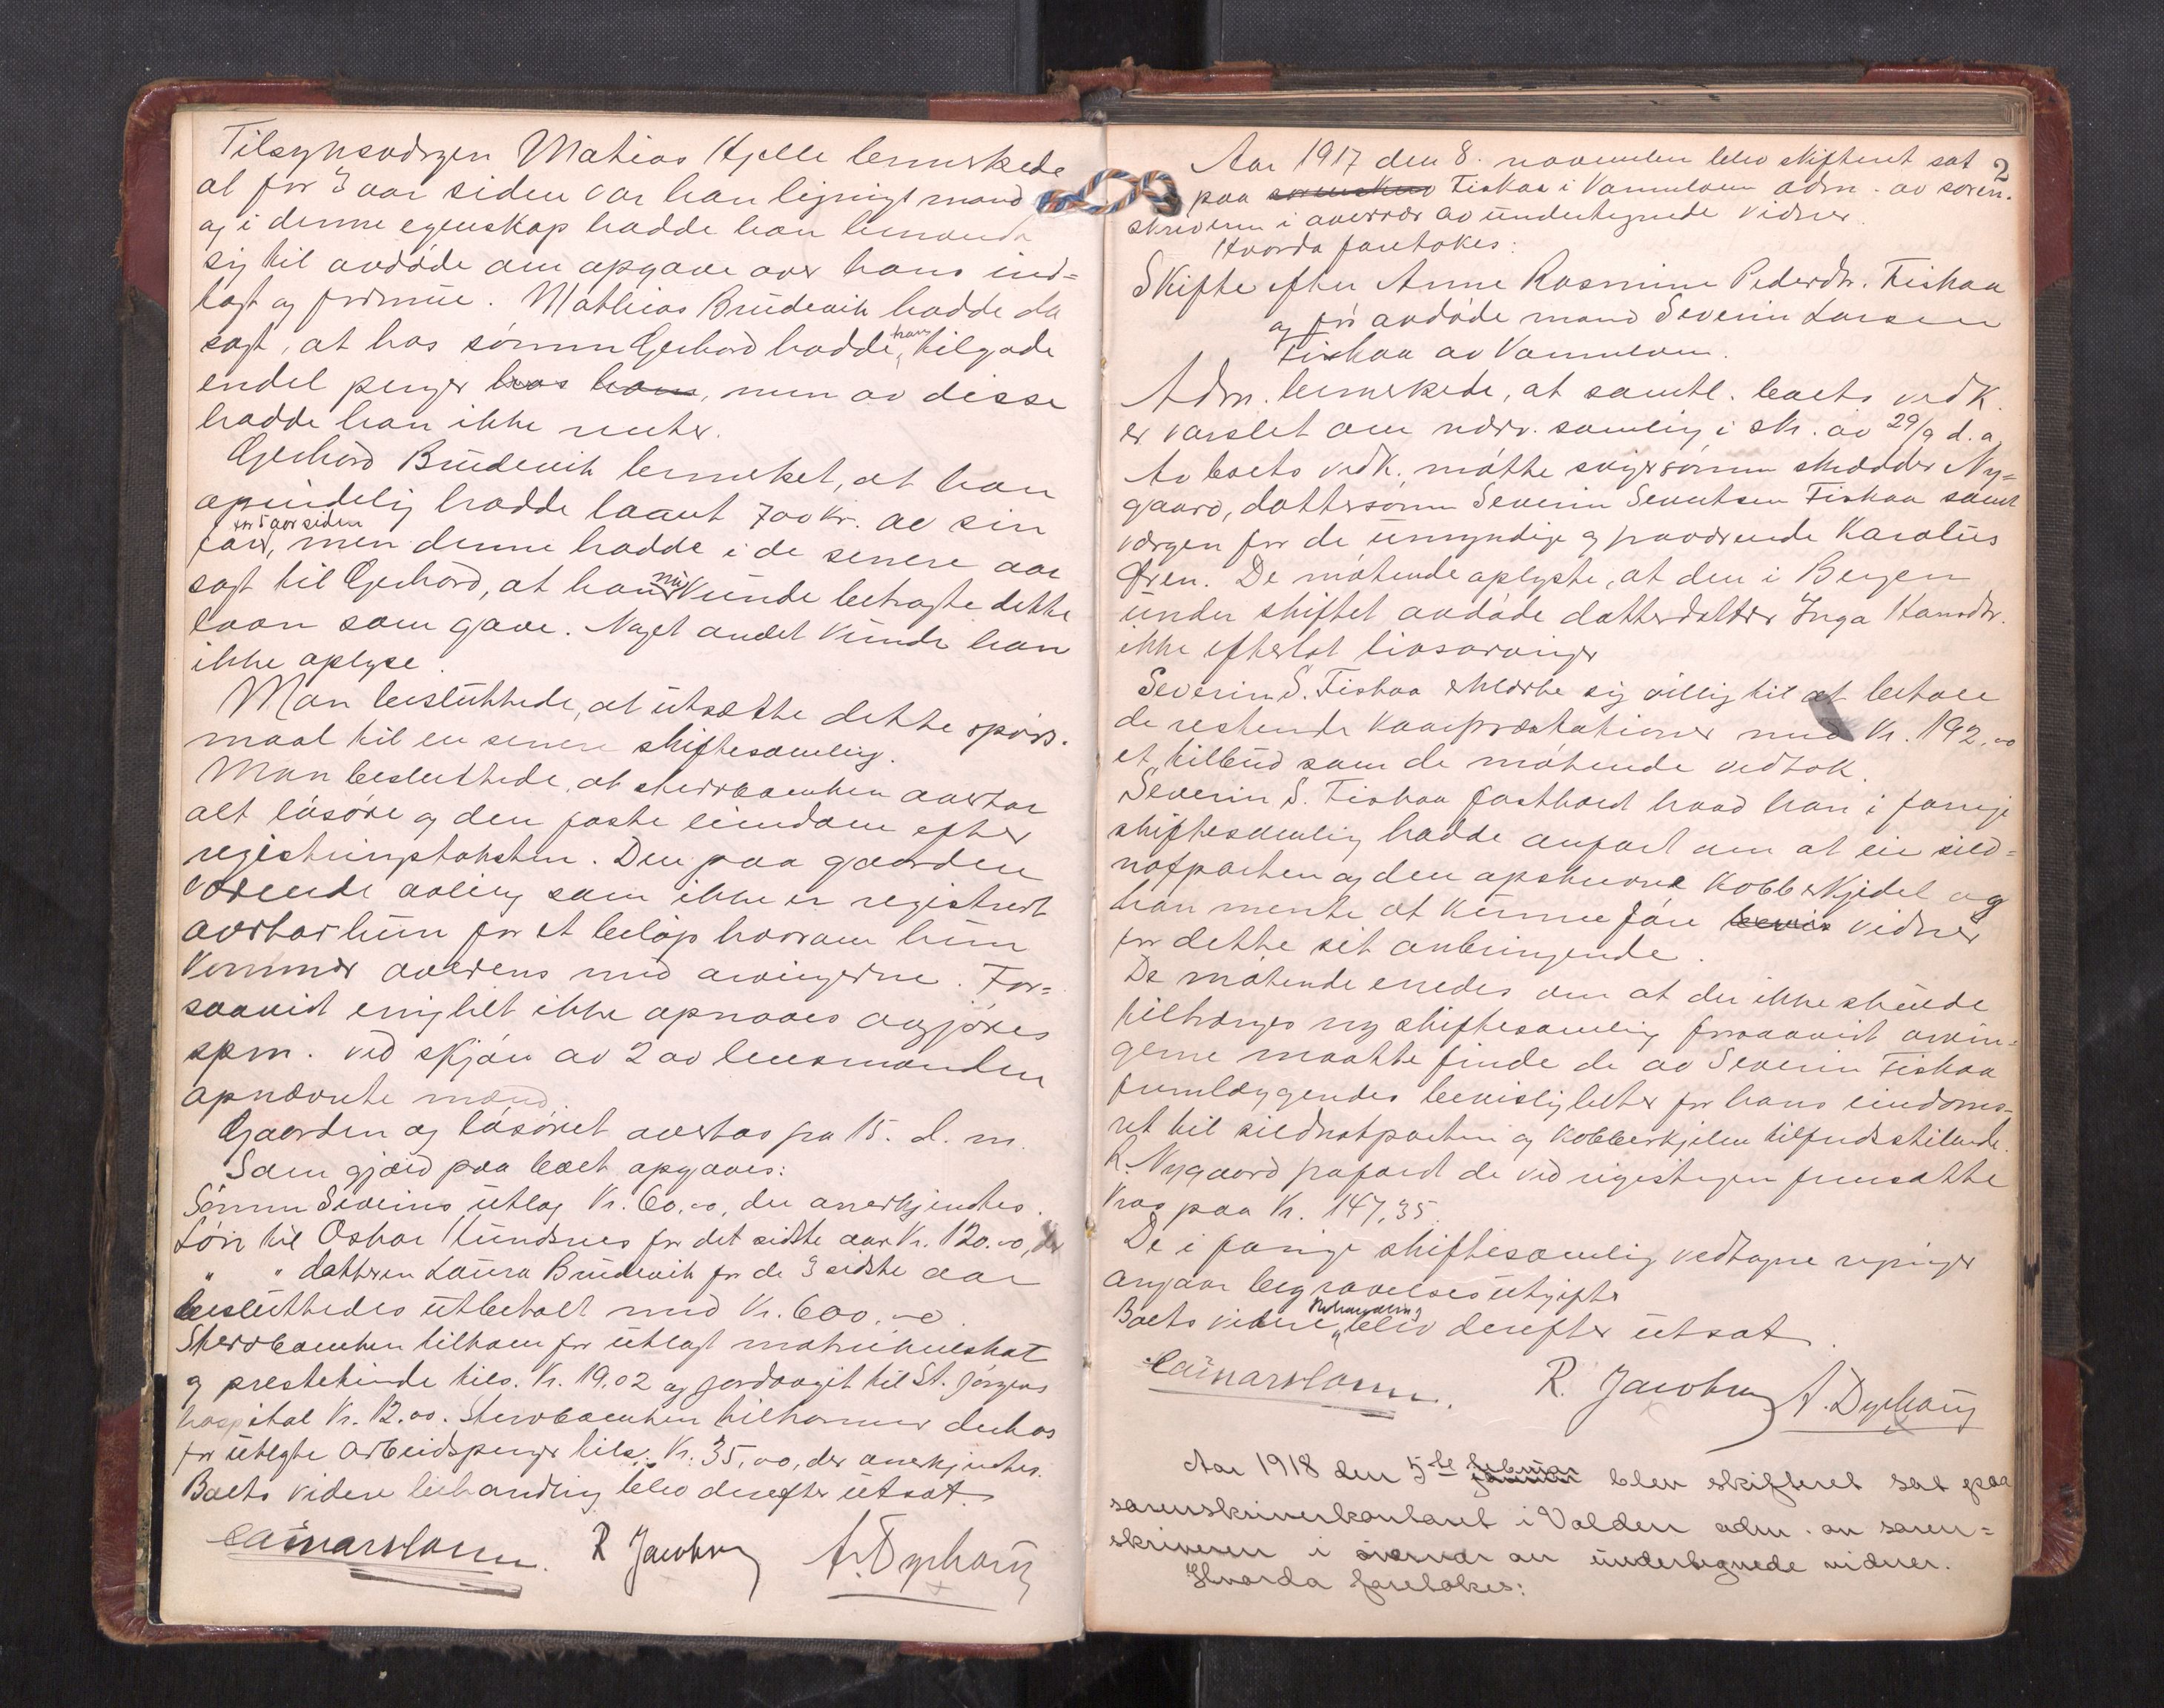 Tilsynsværgen Mathias Hjelle bemerkede
at for 3 aar siden var han lignigsmand
og i denne egenskap hadde han henvendt
sig til avdøde om opgave over hans ind=
tægt og formue. Mathias Brudevik hadde da
sagt, at hos sønnen Gerhard hadde han tilgode
endel penger hos hans, men av disse
hadde han ikke renter.
Gerhard Brudevik bemerket, at han
oprindelig hadde laant 700 kr. av sin
far for 5 aar siden, men denne hadde i de senere aar
sagt til Gerhard, at han nu kunde betragte dette
laan som gave. Noget andet kunde han
ikke oplyse.
Man besluttede, at utsætte dette spørs-
maal til en senere skiftesamling.
Man besluttede, at stervboenken overtar
alt løsøre og den faste eiendom efter
registringstaksten. Den paa gaarden
værende avling som ikke er registrert
overtar hun for et beløp hvorom hun
kommer overens med arvingerne. For=
saavidt enighet ikke opnaaes avgjøres
spm. ved skjøn av 2 av lensmanden
opnævnte mænd.
Gaarden og løsøret overtas fra 15. d. m.
Som gjæld paa boet opgaves:
Sønnen Severins utlæg Kr. 60.00, der anerkjendtes.
Løn til Oskar Hundsnes for det sidste aar Kr. 120.00, der
" " datteren Laura Brudevik for de 3 sidste aar
besluttedes utbetalt med Kr. 600.00.
Stervboenken tilkom for utlagt matrikulskat
og prestetiende tils. Kr. 19.02 og jordavgit til St. Jørgens
hospital Kr. 12.00. Stervboenken tilkommer derhos
for utlagte arbeidspenger tils. Kr. 35,00, der anerkjendtes.
Boets videre behandling blev derefter utsat.
R Jacobsen A. Dyrhaug
2
Aar 1917 den 8. november blev skifteret sat
paa sorenskriv Fiskaa i Vannelven adm. av soren-
skriveren i overvær av undertegnede vidner.
Hvorda foretokes:
Skifte efter Anne Rasmine Pedersdtr. Fiskaa
og før avdøde mand Severin Larsen
Fiskaa av Vannelven.
Adm. bemerkede, at samtl. boets vedk.
er varslet om nærv. samling i skr. av 29/9 d. a.
Av boets vedk. møtte svigersønnen skrædder Ny=
gaard, dattersønn Severin Severtsen Fiskaa samt
værgen for de umyndige og fraværende Karolus
Øren. De møtende oplyste, at den i Bergen
under skiftet avdøde datterdatter Inga Hansdtr.
ikke efterlot livsarvinger
Severin S. Fiskaa erklærte sig villig til at betale
de restende kaarpræstationer med Kr. 192.00
et tilbud som de møtende vedtok.
Severin S. Fiskaa fastholdt hvad han i forrige
skiftesamling hadde anført om at eie sild=
notparten og den opskurne kobberkjedel og
han mente at kunne føre bevis vidner
for dette sit anbringende.
De møtende enedes om at der ikke skulde
tiltrænges ny skiftesamling forsaavidt arvin-
gerne maatte finde de av Severin Fiskaa
fremlæggendes bevisligheter for hans eiendoms-
ret til sildnotparten og kobberkjelen tilfredsstillende.
R. Nygaard frafaldt de ved registreringen fremsatte
krav paa Kr. 147,35.
De i forrige skiftesamling vedtagne regninger
angaar begravelsesutgifter
Boets videre behandling blev derefter utsat.
R. Jacobsen A. Dyrhaug
Aar 1918 den 5te januar februar blev skifteret sat paa
sorenskriverkontoret i Volden adm. av soren=
skriveren i overvær av undertegnede vidner.
Hvorda foretokes: